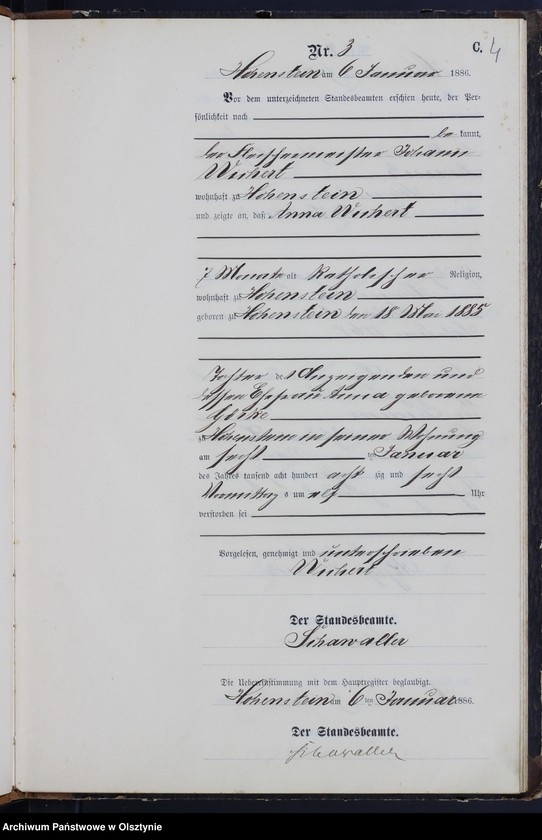 Nr. 3
C. 4
Hohenstein am 6 Januar 1886.
Vor dem unterzeichneten Standesbeamten erschien heute, der Per-
sönlichkeit nach
be kannt,
der Fleischermeister Johann
Wichert
wohnhaft zu Hohenstein
und zeigte an, daß Anna Wichert
7 Monate alt katholischer Religion,
wohnhaft zu Hohenstein
geboren zu Hohenstein den 18 Mai 1885
Tochter des Anzeigenden und
dessen Ehefrau Anna geborene
zu Hohenstein in seiner Wohnung
am sechs ten Januar
des Jahres tausend acht hundert acht zig und sechs
Vormittag s um elf Uhr
verstorben sei
Vorgelesen, genehmigt und unterschrieben
Wichert
Der Standesbeamte.
Schawaller
Die Uebereinstimmung mit dem Hauptregister beglaubigt.
Hohenstein am 6 ten Januar 1886.
Der Standesbeamte.
Schawaller
Archiwum Państwowe w Olsztynie